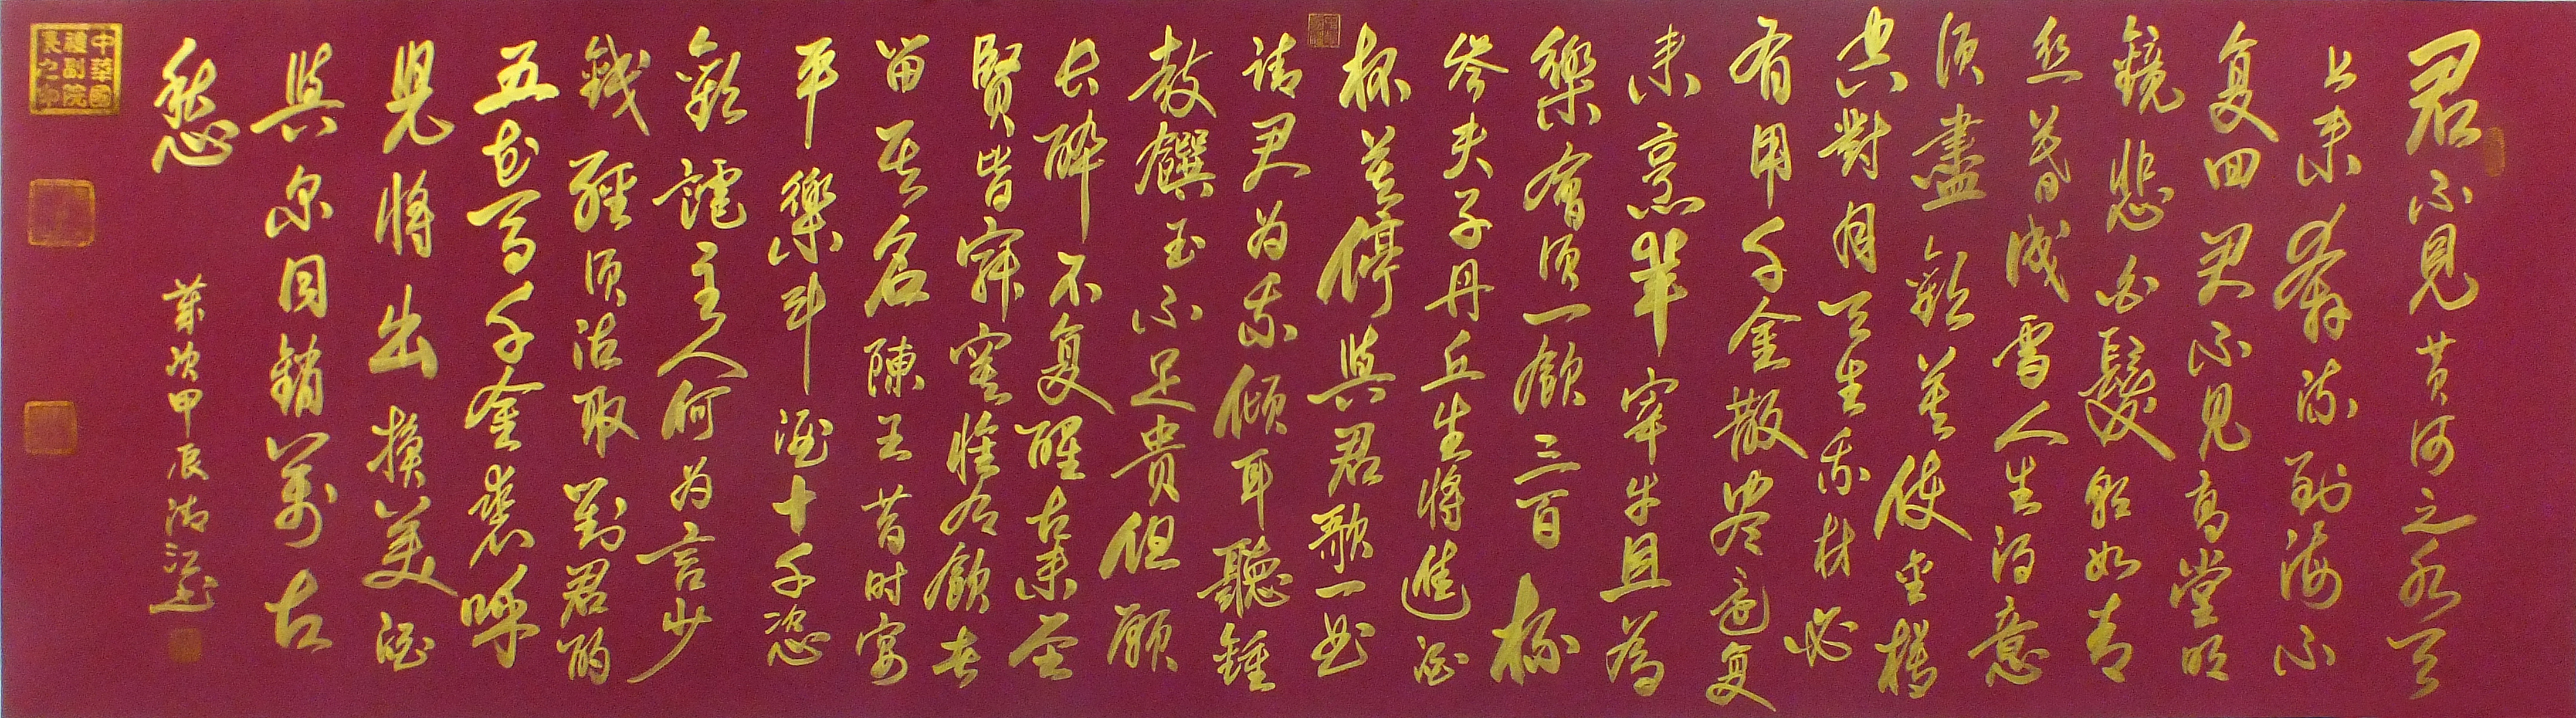 君不見黃河之水天
上来奔流到海不
复回君不見高堂明
鏡悲白髮朝如青
丝暮成雪人生得意
须盡歡莫使金樽
空對月天生我材必
有用千金散尽還复
来烹羊宰牛且為
樂會须一飲三百杯
岑夫子丹丘生將進酒
杯莫停與君歌一曲
请君为我倾耳聽鍾
鼓饌玉不足贵但願
长醉不复醒古来圣
賢皆寂寞惟有飲者
留其名陳王昔时宴
平樂斗酒十千恣
歡謔主人何为言少
錢徑须沽取對君酌
五花馬千金裘呼
児將出換美酒
與尔同銷萬古
愁
歲次甲辰
中華國
禮副院
長之印